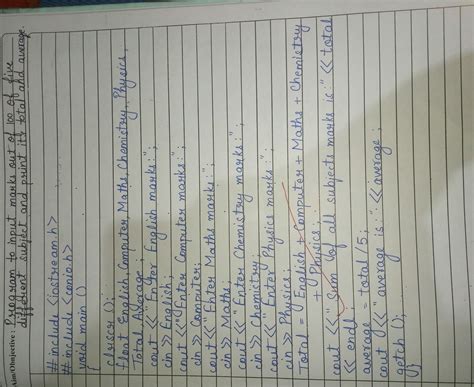 Aim/Objective: Program to input marks out of 100 of five
different subject and print its total and average.
# include <iostream.h>
# include <conio.h>
void main ()
{
clrscr ();
float English, Computer, Maths, Chemistry, Physics,
Total, Average;
cout << " Enter English marks:";
cin >> English;
cout << " Enter Computer marks:";
cin >> Computer;
cout << " Enter Maths marks:";
cin >> Maths;
cout << " Enter Chemistry marks:";
cin >> Chemistry;
cout << " Enter Physics marks:";
cin >> Physics;
Total = English + Computer + Maths + Chemistry
+ Physics;
cout << " Sum of all subjects marks is:" << total
<< endl;
average = total /5;
cout << " average is:" << average;
getch ();
}